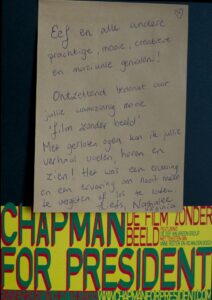 Eef en alle andere
prachtige, mooie, creatieve
en muzikale genieën!
Ontzettend bedankt voor
jullie waanzinnig mooie
'film zonder beeld'
Met gesloten ogen kan ik jullie
verhaal voelen, horen en
zien! Het was een ervaring
en een ervaring om nooit meer
te vergeten of los te laten
Liefs,
CHAPMAN
DE FILM ZONDER
BEELD
FOR PRESIDENT
WWW.CHAPMANFORPRESIDENT.COM